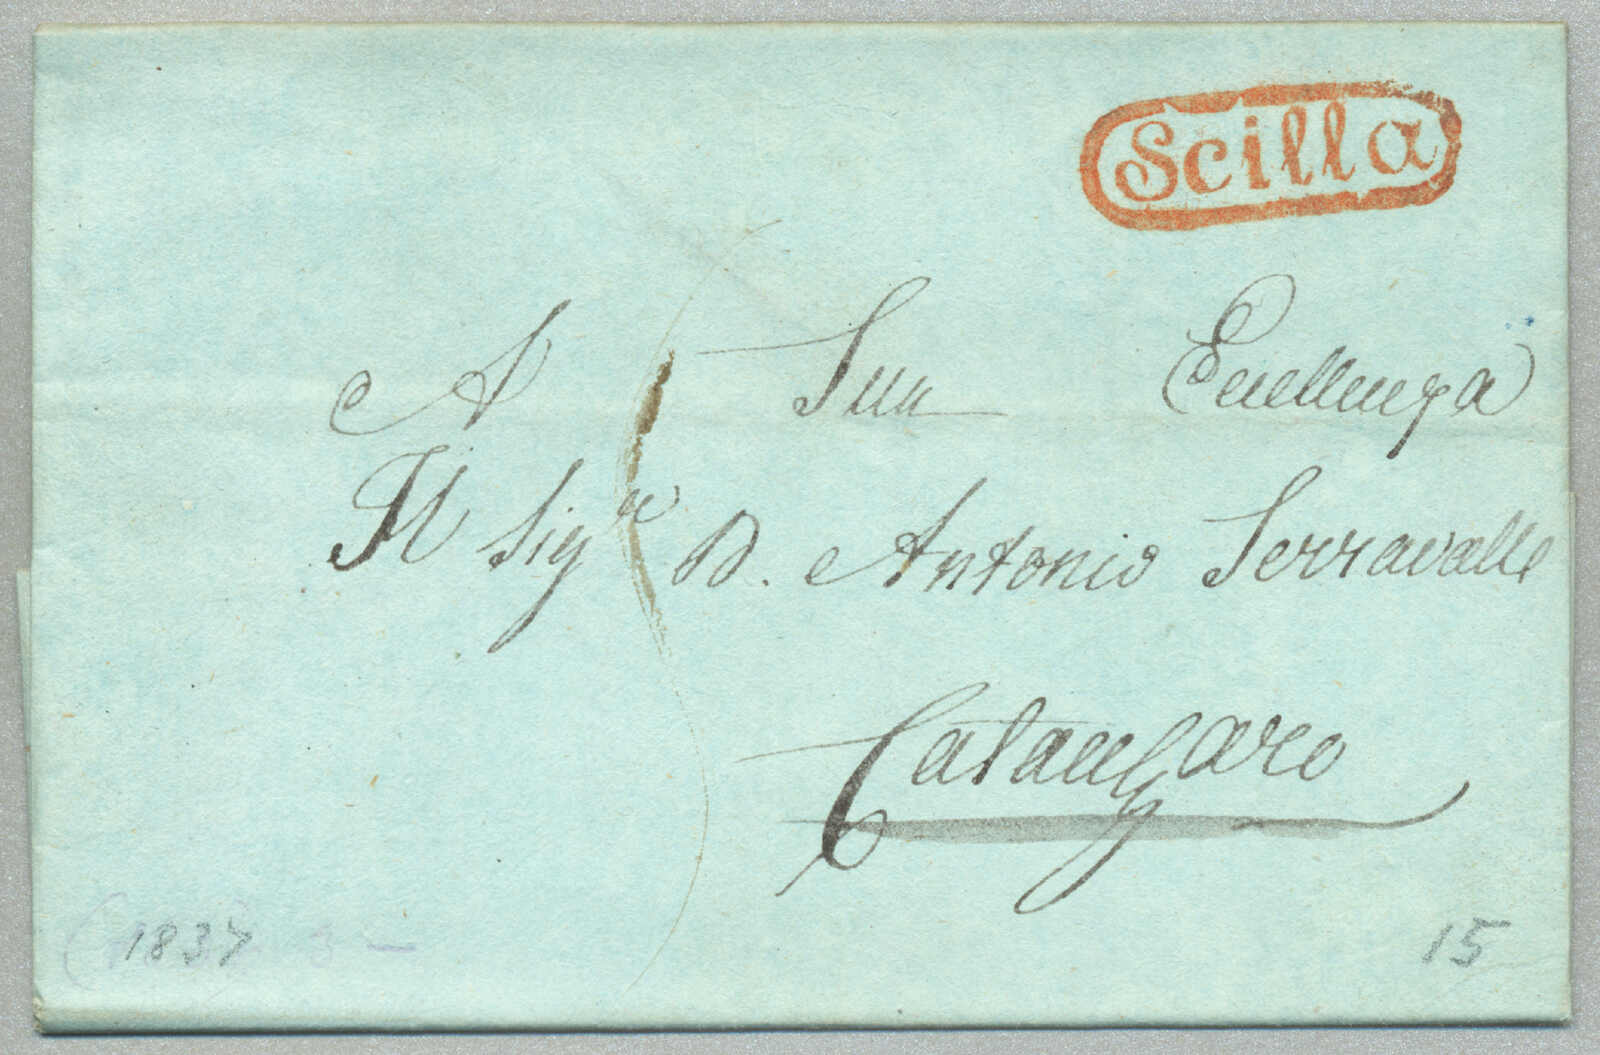 Scilla
A Sua Eccellenza
Il Sig.re D. Antonio Serravalle
Catanzaro
1837
15